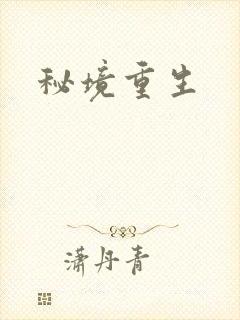 秘境重生
潇丹青